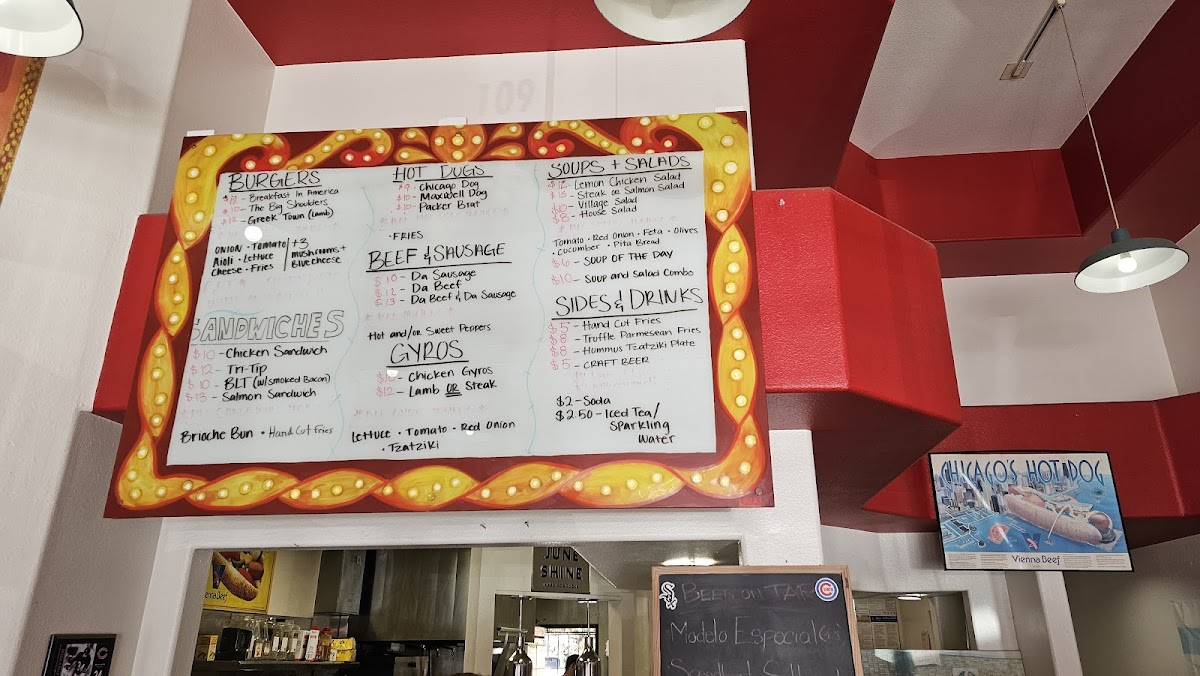 BURGERS
Breakfast In America
$10 - The Big Shoulders
$12 - Greek Town (Lamb)
ONION • Tomato
Aioli • Lettuce
Cheese • Fries
+3
mushrooms +
Bluecheese
SANDWICHES
$10 - Chicken Sandwich
$12 - Tri-Tip
$10 - BLT (w/smoked Bacon)
$13 - Salmon Sandwich
Brioche Bun • Hand Cut Fries
HOT DOGS
$9 - Chicago Dog
$10 - Maxwell Dog
$10 - Packer Brat
• FRIES
BEEF & SAUSAGE
$10 - Da Sausage
$12 - Da Beef
$13 - Da Beef & Da Sausage
Hot and/or Sweet Peppers
GYROS
$10 - Chicken Gyros
$12 - Lamb OR Steak
Lettuce • Tomato • Red Onion
• Tzatziki
SOUPS + SALADS
Lemon Chicken Salad
Steak or Salmon Salad
Village Salad
$8 - House Salad
Tomato • Red Onion • Feta • Olives
• Cucumber • Pita Bread
$6 - SOUP OF THE DAY
$10 - Soup and Salad Combo
SIDES & DRINKS
$5 - Hand Cut Fries
$8 - Truffle Parmesean Fries
$8 - Hummus Tzatziki Plate
$5 - CRAFT BEER
$2 - Soda
$2.50 - Iced Tea/
Sparkling
Water
109
CHICAGO'S HOT DOG
Vienna Beef
Vienna Beef
JUNE
SHINE
Sox
BEER ON TAP
Modelo Especial